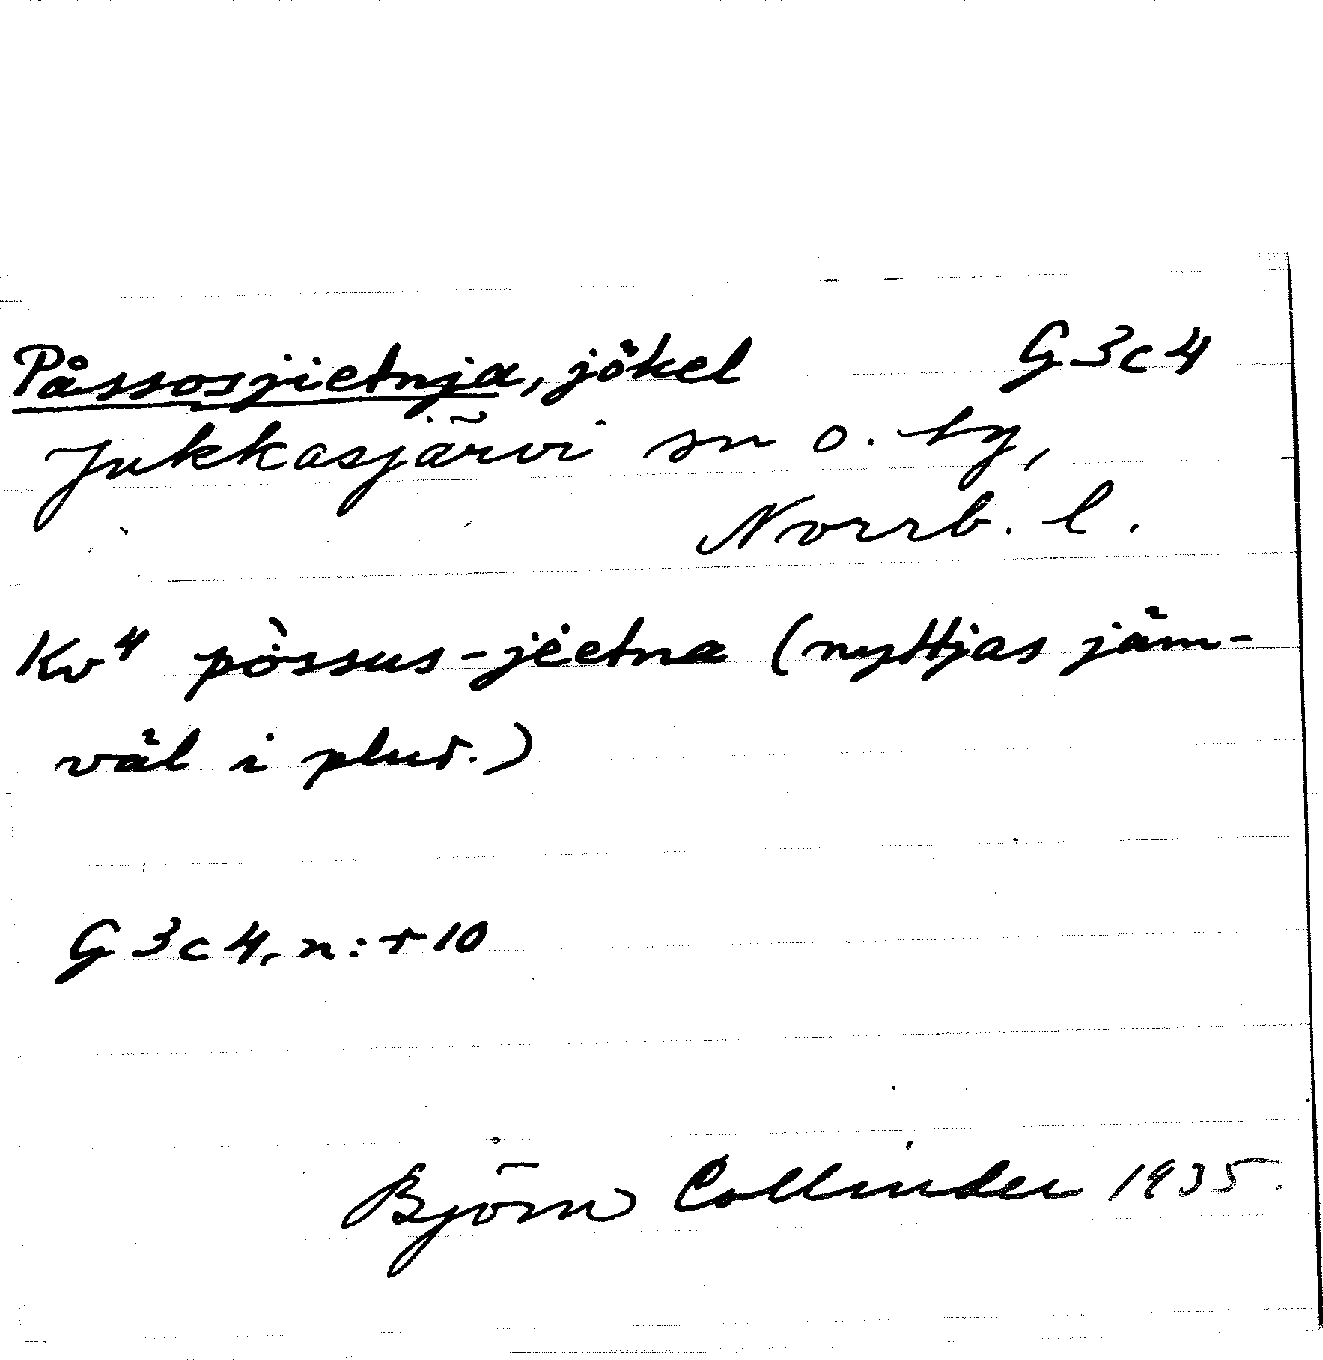 Påssosjietnja, jökel G3c4
Jukkasjärvi sn o. tg,
Norrb. l.
Kv⁴ pòssus-jèetna (nyttjas jäm-
väl i plur.)
G3c4, n:r 10
Björn Collinder 1935.